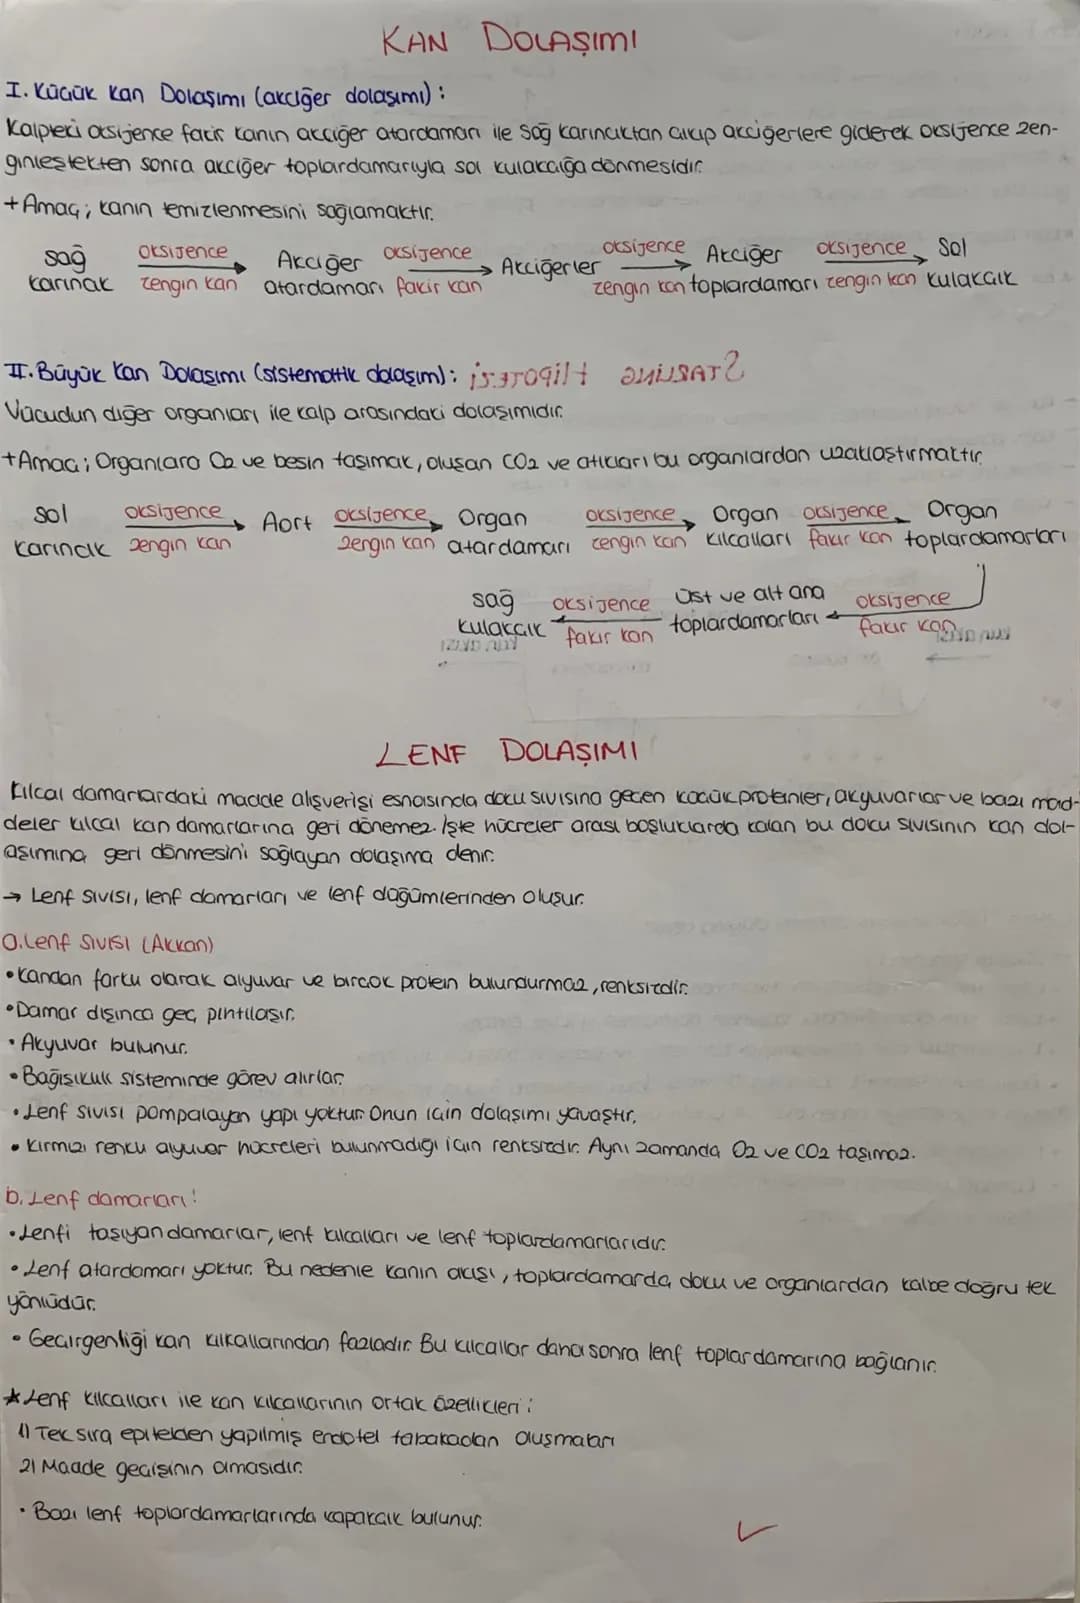 KAN DOLAŞIMI
I. Küçük Kan Dolaşımı (akciğer dolaşımı):
Kalpteki oksijence fakir kanın akciğer atardamarı ile sağ karıncıktan çıkıp akciğerlere giderek oksijence zen-
ginleştekten sonra akciğer toplardamarıyla sol kulakcığa dönmesidir.
+Amaç; kanın temizlenmesini sağlamaktır.
sağ karıncık oksijence zengin kan Akciğer atardamarı oksijence fakir kan Akciğerler oksijence zengin kan Akciğer toplardamarı oksijence zengin kan Sol kulakcık
II. Büyük Kan Dolaşımı (sistemattik dolaşım):
Vücudun diğer organları ile kalp arasındaki dolaşımıdır.
+Amaç; Organlara O2 ve besin taşımak, oluşan CO2 ve atıkları bu organlardan uzaklaştırmaktır.
sol karıncık oksijence zengin kan Aort oksijence zengin kan Organ atardamarı oksijence zengin kan Organ kılcalları oksijence fakir kan Organ toplardamarları
sağ kulakcık oksijence fakir kan üst ve alt ana toplardamarları oksijence fakir kan
LENF DOLAŞIMI
Kılcal damarlardaki madde alışverişi esnasında doku sıvısına geçen küçük proteinler, akyuvarlar ve bazı mad-
deler kılcal kan damarlarına geri dönemez. İşte hücreler arası boşluklarda kalan bu doku sıvısının kan dol-
aşımına geri dönmesini sağlayan dolaşıma denir.
→ Lenf sıvısı, lenf damarları ve lenf düğümlerinden oluşur.
a. Lenf Sıvısı (Akkan)
• Kandan farklı olarak alyuvar ve birçok protein bulundurmaz, renksizdir.
• Damar dışınca geç pıhtılaşır.
• Akyuvar bulunur.
• Bağışıklık sisteminde görev alırlar.
• Lenf sıvısı pompalayan yapı yoktur. Onun için dolaşımı yavaştır.
• Kırmızı renkli alyuvar hücreleri bulunmadığı için renksizdir. Aynı zamanda O2 ve CO2 taşımaz.
b. Lenf damarları:
• Lenfi taşıyan damarlar, lenf kılcalları ve lenf toplardamarlarıdır.
• Lenf atardamarı yoktur. Bu nedenle kanın akışı, toplardamarda, doku ve organlardan kalbe doğru tek
yönlüdür.
• Geçirgenliği kan kılkallarından fazladır. Bu kılcallar daha sonra lenf toplardamarına bağlanır.
★ Lenf kılcalları ile kan kılcallarının ortak özellikleri:
1) Tek sıra epitelden yapılmış endotel tabakadan oluşmaları
2) Madde geçişinin olmasıdır.
• Bazı lenf toplardamarlarında kapakçık bulunur.